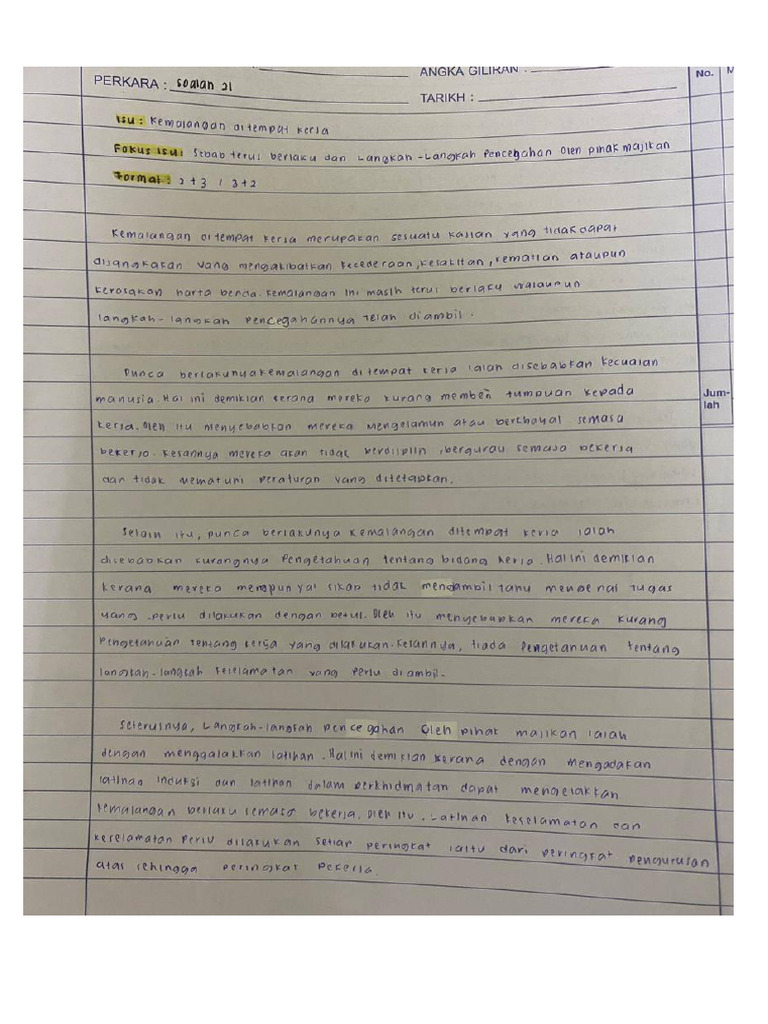 ANGKA GILIRAN :
No.
M
PERKARA : Soalan 21
TARIKH :
Isu : Kemalangan di tempat kerja
Fokus isu : Sebab terus berlaku dan Langkah-Langkah Pencegahan oleh pihak majikan
Format : 2+3 / 3+2
Kemalangan di tempat kerja merupakan sesuatu kajian yang tidak dapat
disangkakan yang mengakibatkan kecederaan, kesakitan, kematian ataupun
kerosakan harta benda. Kemalangan ini masih terus berlaku walaupun
langkah-langkah pencegahannya telah diambil.
Punca berlakunya kemalangan di tempat kerja ialah disebabkan kecuaian
manusia. Hal ini demikian kerana mereka kurang memberi tumpuan kepada
kerja. Oleh itu menyebabkan mereka mengelamun atau berkhayal semasa
bekerja. Kesannya mereka akan tidak berdiplin, bergurau semasa bekerja
dan tidak mematuhi peraturan yang ditetapkan.
Jum-
lah
Selain itu, punca berlakunya kemalangan ditempat kerja ialah
disebabkan kurangnya pengetahuan tentang bidang kerja. Hal ini demikian
kerana mereka mempunyai sikap tidak mengambil tahu mengenai tugas
yang perlu dilakukan dengan betul. Oleh itu menyebabkan mereka kurang
pengetahuan tentang kerja yang dilakukan. Kesannya, tiada pengetahuan tentang
langkah-langkah keselamatan yang perlu diambil.
Seterusnya, Langkah-langkah pencegahan oleh pihak majikan ialah
dengan menggalakkan latihan. Hal ini demikian kerana dengan mengadakan
latihan induksi dan latihan dalam perkhidmatan dapat mengelakkan
kemalangan berlaku semasa bekerja. Oleh itu, Latihan keselamatan dan
keselamatan perlu dilakukan setiap peringkat iaitu dari peringkat pengurusan
atas sehingga peringkat pekerja.